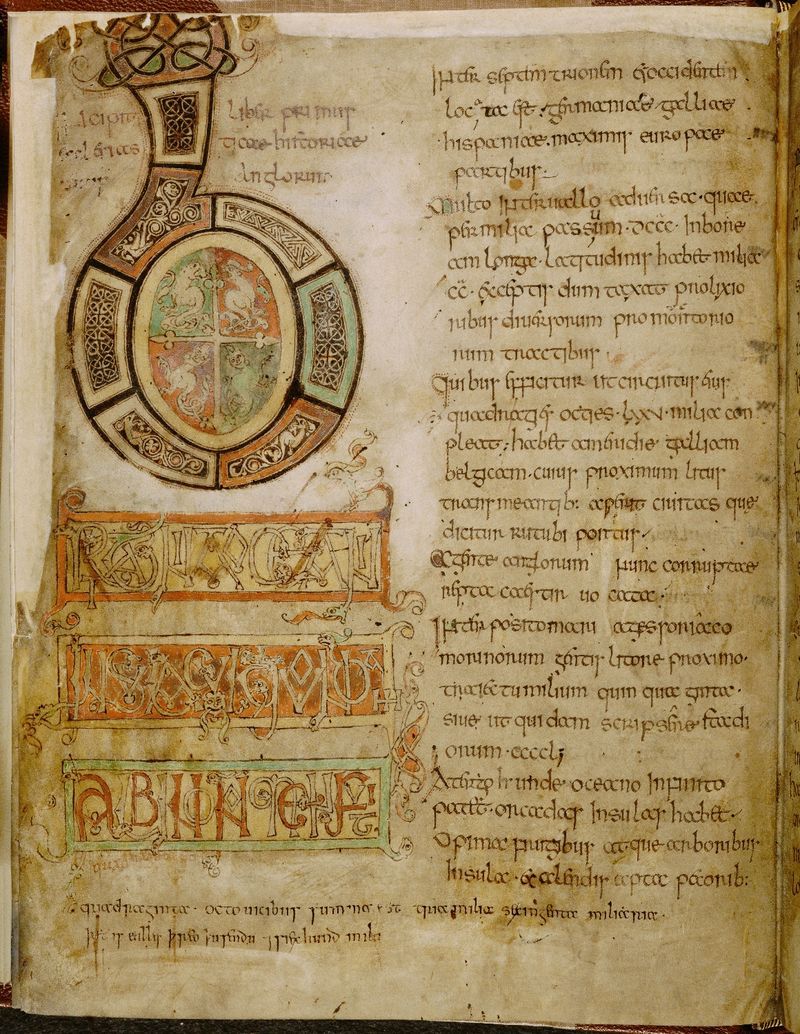 Incipit Liber primus
ecclesias ticae historiae
Anglorum
INter septemtrionem & occidentem
locata est. germaniae galliae
hispaniae. maximis europae
partibus
Multo interuallo aduersa. quae
per milia passuum. dccc. in borae
am longa. latitudinis habet milia
cc. exceptis dum taxat prolixio
ribus diuersorum promontorio
rum tractibus
Quibus efficitur ut circuitus eius
quadragies octies. lxxv. milia con
pleat. habet a meridie galliam
belgicam. cuius proximum litus
transmeantib: aperit ciuitas que
dicitur rutubi portus
A gente anglorum nunc corruptae
reptacaestir uocata.
INterposito mari a gessoriaco
morinorum gentis litore proximo.
traiectu milium quinquaginta.
siue ut quidam scripsere stadi
orum. ccccl;
A tergo unde oceano infinito
patet. orcadas insulas habet
Opima frugibus atque arboribus
insula. & alendis apta pecorib:
quadraginta. octo uicibus summa est quae milia sexingenta miliaria.
þæt is ealles þreo þusendu 7 six hund mila